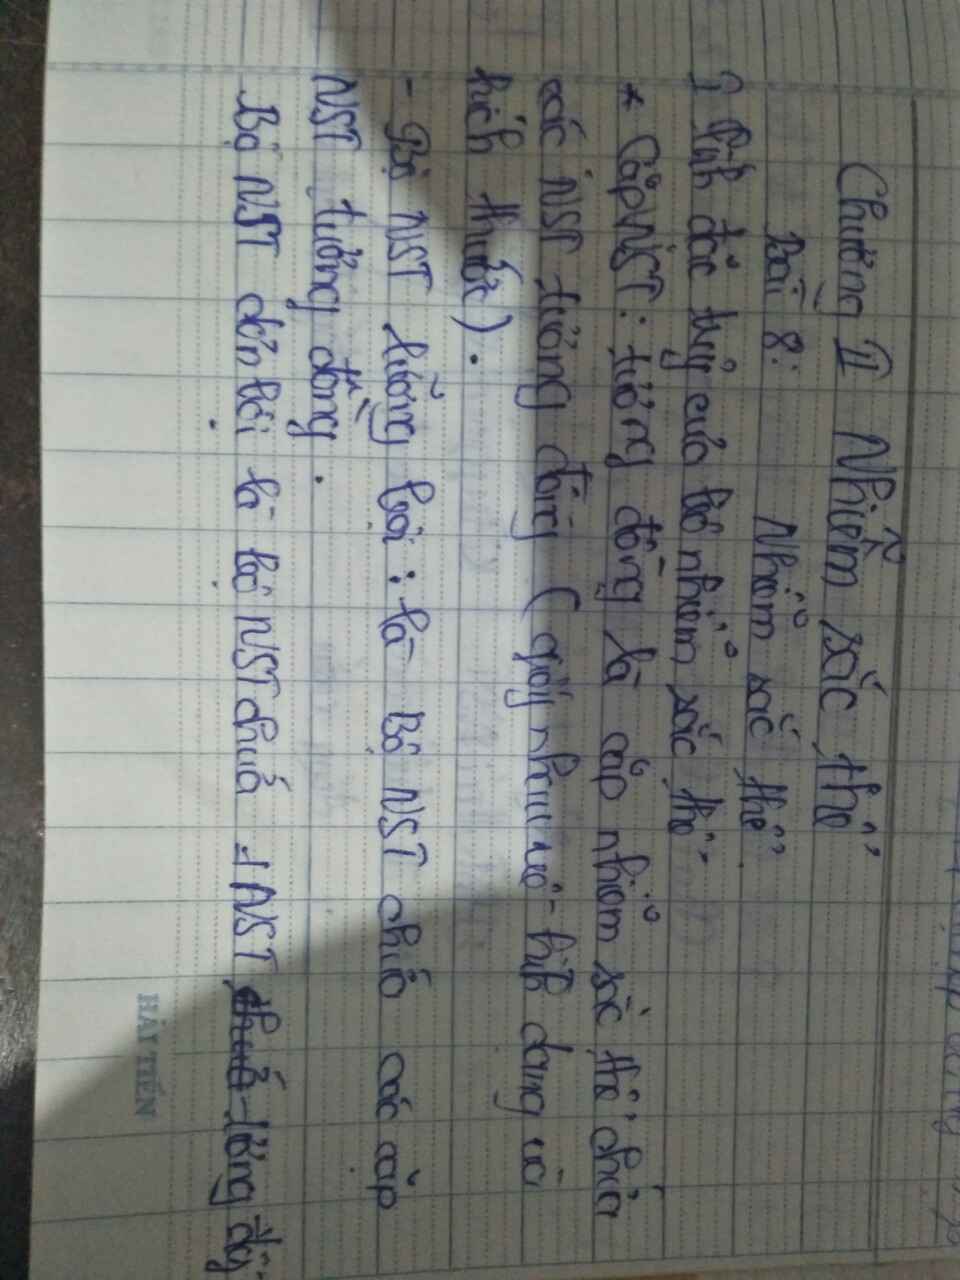 Chương II Nhiễm sắc thể
Bài 8: Nhiễm sắc thể
I Tính đặc trưng của bộ nhiễm sắc thể.
* Cặp NST: tương đồng là cặp nhiễm sắc thể chứa
các NST tương đồng (giống nhau về hình dạng và
kích thước).
- Bộ NST lưỡng bội: là Bộ NST chứa các cặp
NST tương đồng.
Bộ NST đơn bội là bộ NST chứa 1 NST tương đồng
HẢI TIẾN